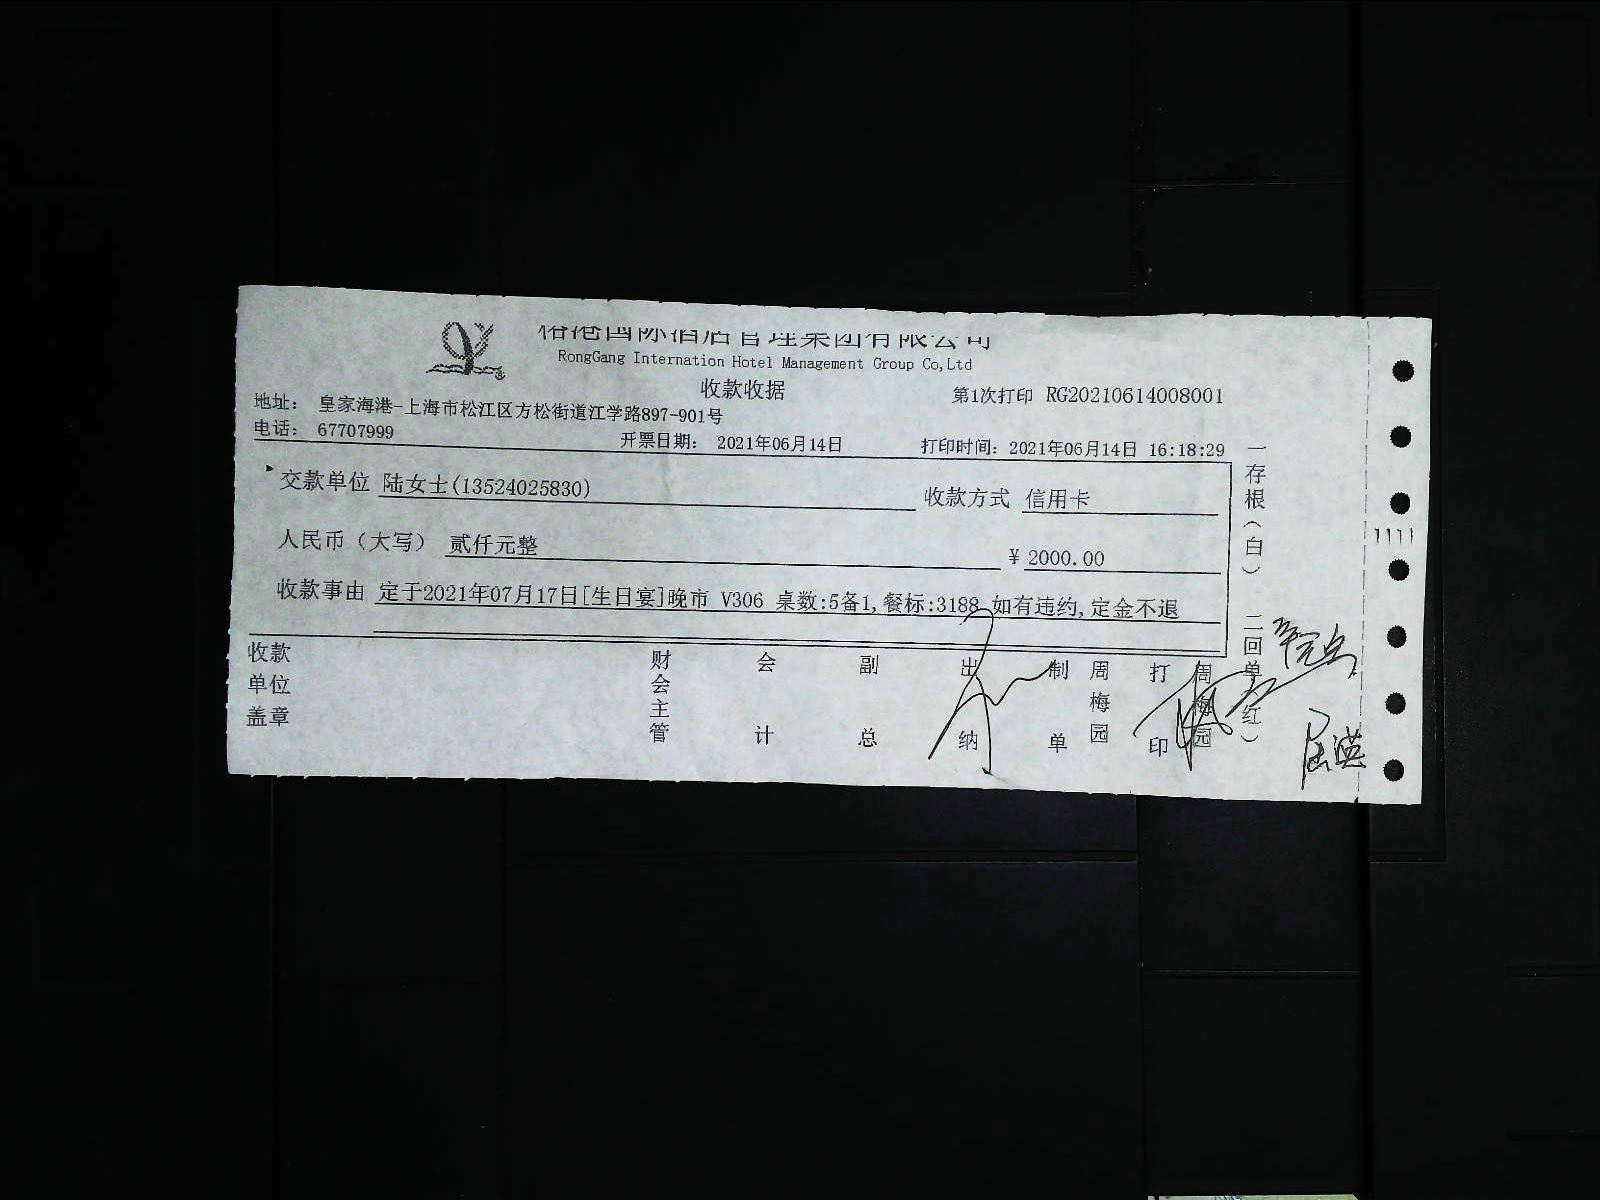 国际酒店管理集团有限公司
RongGang Internation Hotel Management Group Co,Ltd
收款收据
第1次打印 RG20210614008001
地址： 皇家海港-上海市松江区方松街道江学路897-901号
电话： 67707999
开票日期： 2021年06月14日
打印时间：2021年06月14日 16:18:29
交款单位 陆女士(13524025830)
收款方式 信用卡
人民币（大写） 贰仟元整
¥ 2000.00
收款事由 定于2021年07月17日[生日宴]晚市 V306 桌数:5备1,餐标:3188 如有违约,定金不退
收款单位盖章
财会主管
会计
副总
出纳
制单
周梅园
打印
周梅园
一存根（白） 二回单（红）